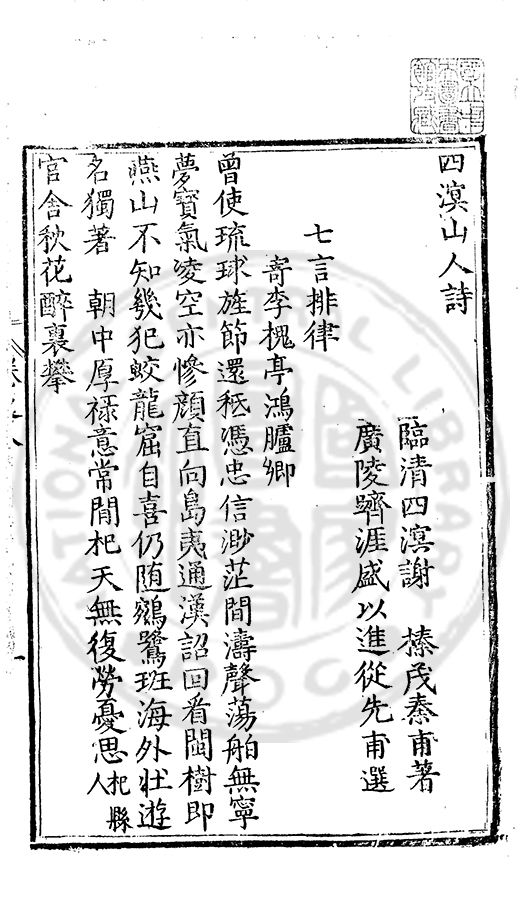 四溟山人詩
臨清四溟謝 榛茂秦甫著
廣陵躋涯盛以進從先甫選
七言排律
寄李槐亭鴻臚卿
曾使琉球旌節還秪憑忠信渺茫間濤聲蕩舶無寧
夢寶氣凌空亦慘顏直向島夷通漢詔回看閩樹即
燕山不知幾犯蛟龍窟自喜仍随鵷鷺班海外壯遊
名獨著 朝中厚祿意常閒杞天無復勞憂思杞縣人
官舍秋花醉裏攀